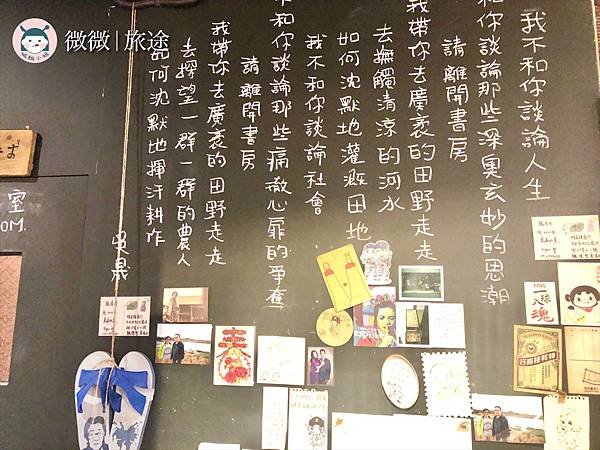 微微|旅途
我不和你談論人生
和你談論那些深奧玄妙的思潮
請離開書房
我帶你去廣袤的田野走走
去撫觸清涼的河水
如何沈默地灌溉田地
我不和你談論社會
不和你談論那些痛徹心扉的爭奪
請離開書房
我帶你去廣袤的田野走走
去探望一群一群的農人
如何沈默地揮汗耕作
吳晟
室
OM.
一球
入魂